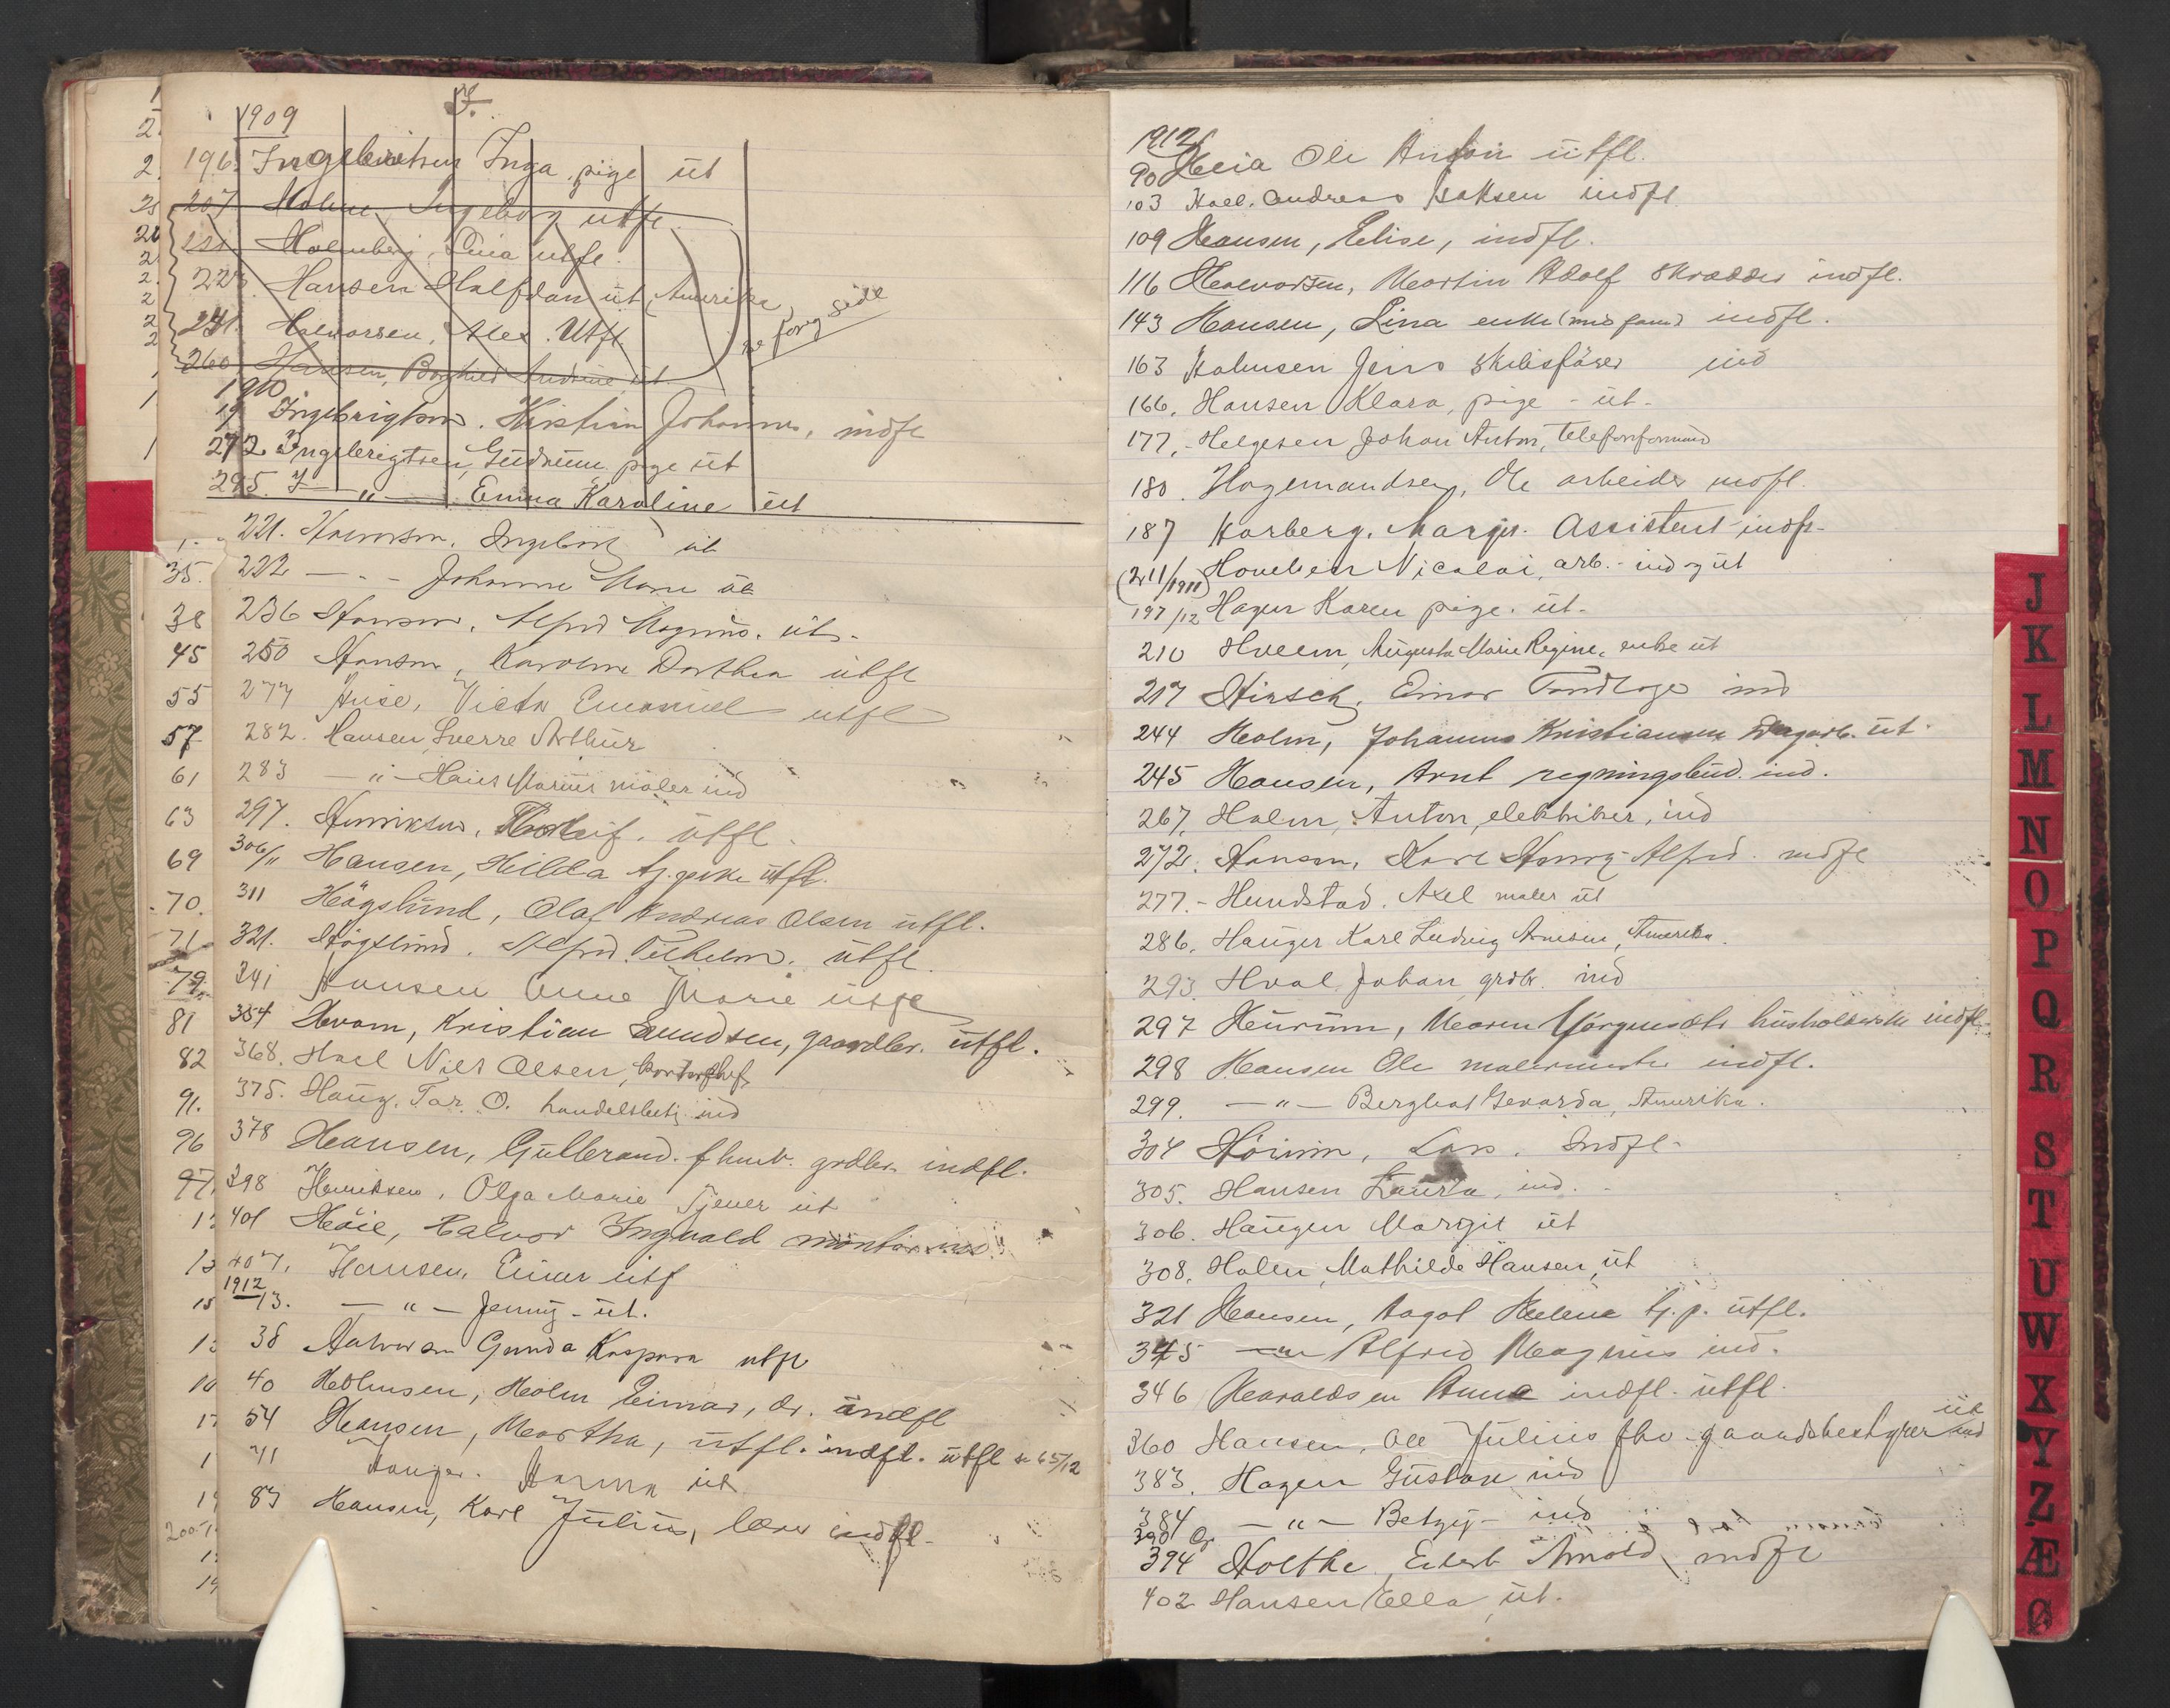 I.
1909
196. Ingebritsen Inga, pige út
207. Holme, Ingeborg utfl.
221 Holmberg, Lina utfl.
223. Hansen Halfdan út, Amerika
241. Halvorsen, Alex. Utfl.
se forg side
260 Hansen, Borghild Andrine út
1910
19 Ingebrigtsen. Kristian Johannes, indfl
272. Ingebrigtsen, Gúdrún pige út
295. I — " — Emma Karoline út
221. Halvorsen, Ingeborg út
222 — " — Johanne Marie út
236 Hansen, Alfred Magnús. út.
250 Hansen, Karoline Dorthea útfl
277 Huse, Victor Emanúel utfl
282. Hansen Sverre Arthúr
283 — " — Hans Mariús maler ind
297. Henriksen, útfl.
306/11 Hansen, Hilda tj.pike útfl.
311 Högslúnd, Olaf Andreas Olsen útfl.
321. Högslúnd. Alfred Vilhelm. útfl.
341 Hansen Anne Marie útfl
354 Hvam, Kristian Amundsen, gaardbr. útfl.
368. Hoel Niels Olsen, kontorchef
375. Haúg. Tar. O. handelsbetj. ind
378 Hansen, Gúlbrand. fhnv. grdbr. indfl.
398 Henriksen, Olga Marie Tjener út
401 Høie, Halvor Ingvald montør ind
407. Hansen, Einar utf
1912
13. — " — Jenny - út.
38 Halvorsen Gunda Kaspara utfl
40 Holmsen, Holm Einar, dr. indfl
54 Hansen, Martha, útfl. indfl. útfl se 65/12
71 Hauger. Hanna út
83 Hansen, Karl Júliús, lærer indfl.
35.
38
45
55
57
61
63
69
70.
71
79.
81
82
91.
96
97.
1912
90 Heia Ole Anton útfl.
103 Hoel. Andreas Isaksen indfl
109 Hansen, Elise, indfl.
116 Halvorsen, Martin Adolf Skrædder indfl.
143 Hansen, Lina enke (med fam) indfl.
163 Holmsen Jens Skibsfører ind
166. Hansen Klara, pige - út -
177. - Helgesen Johan Anton, Telefonformand
180. Hagemandsen, Ole arbeider indfl.
187 Harberg, Margr. Assistent - indfl.
(211/1911) Nicolai, arb. - ind og út
197/12 Hagen Karen pige. út -
210 Hveem, Aúgusta Marie Regine, enke út
217 Hirsch, Einar Tandlæge ind
244 Holm, Johannes Kristiansen Dagarb. út.
245 Hansen, Arnt regningsbúd. ind.
267. Holm, Anton, elektriker, ind
272. Hansen, Karl Henry Alfred. indfl
277. - Hundstad. Axel maler út
286. Haúger Karl Ludvig Arnesen, Amerika.
293. Hval Johan grdbr. ind
297 Heúrúm, Maren Jörgensdtr húsholderske indfl.
298 Hansen Ole malermester indfl.
299. — " — Berghot Gerarda, Amerika.
304 Höium, Lars. Indfl -
305. Hansen Laúra, ind.
306. Haúgen Margit út
308. Holen, Mathilde Hansen, út
321 Hansen, Aagot Helene tj. p. útfl.
345 — " — Alfred Magnús ind.
346 Haraldsen Anna indfl. útfl.
360 Hansen, Ole Júliús fhv. gaardsbestyrer ind út
383. Hagen Gústav ind
384 — " — Betzy - ind
390 og
394 Holthe, Edert Arnold, indfl
402 Hansen Ella, út.
J
K
L
M
N
O
P
Q
R
S
T
U
W
X
Y
Z
Æ
Ø